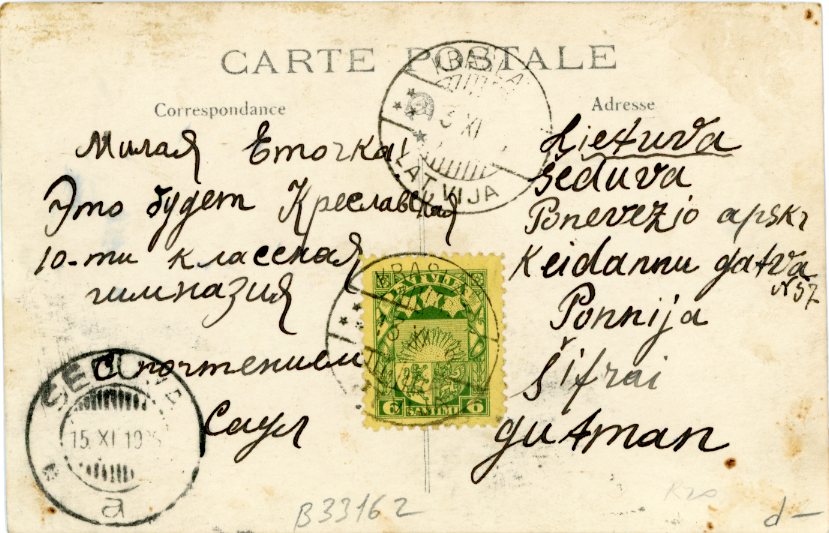 CARTE POSTALE
Correspondance
Милая Еточка!
Это будет Креславская
10-ти классная
гимназия
С почтением
Саул
Adresse
Lietuva
Šeduva
Ponevežio apskr
Keidannu gatva
N 57
Ponnija
Šifrai
gutman
LATVIJA
3 XI
LATVIJA
6 SANTIMI 6
15 XI 19
a
B33162
K20
d-